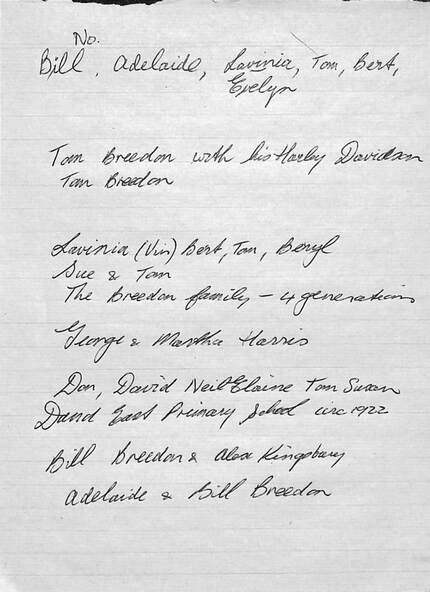 No.
Bill, Adelaide, Lavinia, Tom, Bert,
Evelyn
Tom Breedon with his Harley Davidson
Tom Breedon
Lavinia (Vin) Bert, Tom, Beryl
Sue & Tom
The Breedon family - 4 generations
George & Martha Harris
Don, David Neil Elaine Tom Susan
East Primary School circ 1922
Bill Breedon & Alex Kingsbury
Adelaide & Bill Breedon